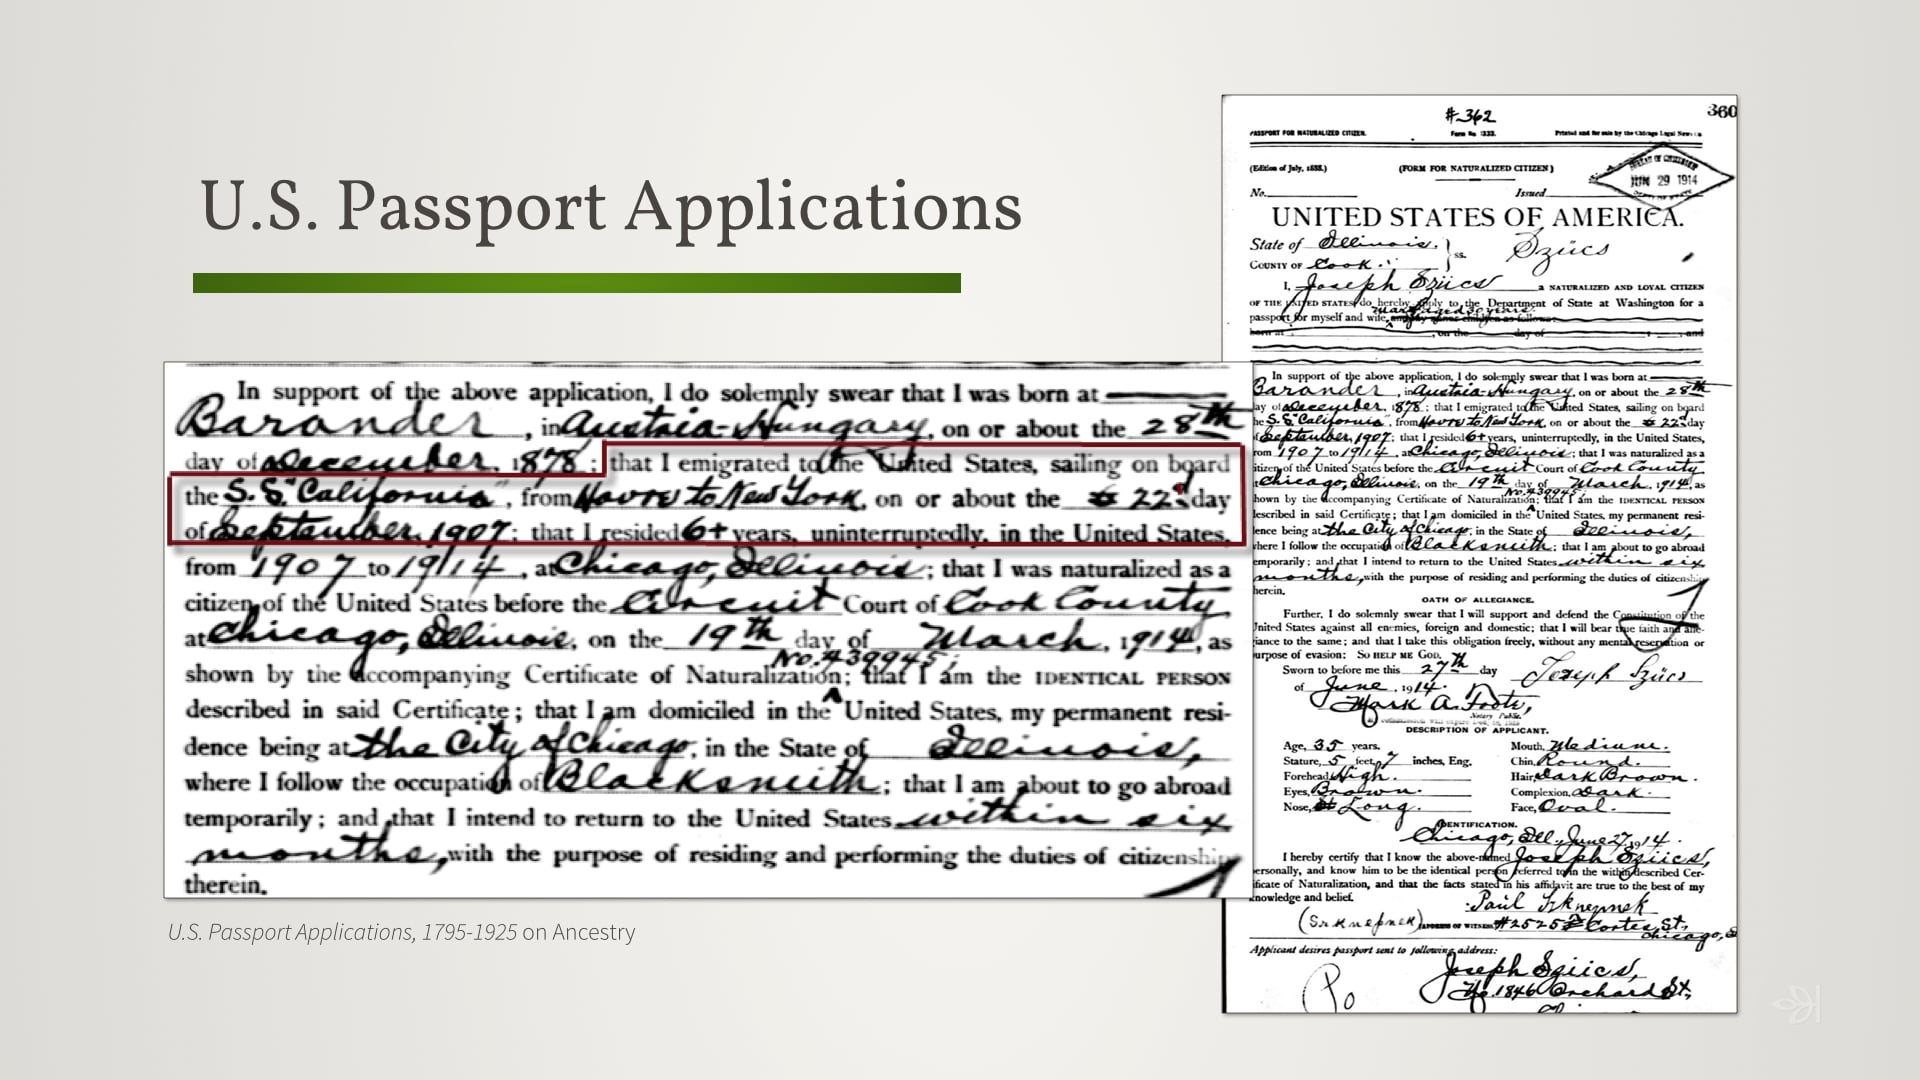 U.S. Passport Applications
In support of the above application, I do solemnly swear that I was born at
Barander, in Austria-Hungary, on or about the 28th
day of December, 1878; that I emigrated to the United States, sailing on board
the S.S. "California", from Havre to New York, on or about the 22d day
of September, 1907; that I resided 6+ years, uninterruptedly, in the United States,
from 1907 to 1914, at Chicago, Illinois; that I was naturalized as a
citizen of the United States before the Circuit Court of Cook County
at Chicago, Illinois, on the 19th day of March, 1914, as
No. 439945;
shown by the accompanying Certificate of Naturalization; that I am the IDENTICAL PERSON
described in said Certificate; that I am domiciled in the United States, my permanent resi-
dence being at the City of Chicago, in the State of Illinois,
where I follow the occupation of Blacksmith; that I am about to go abroad
temporarily; and that I intend to return to the United States within six
months, with the purpose of residing and performing the duties of citizenship
therein.
U.S. Passport Applications, 1795-1925 on Ancestry
#362
360
PASSPORT FOR NATURALIZED CITIZEN. Form No. 1333. Printed and for sale by the Chicago Legal News
(Edition of July, 1888.) (FORM FOR NATURALIZED CITIZEN)
JUN 29 1914
No. Issued
UNITED STATES OF AMERICA.
State of Illinois. } ss. Szücs
COUNTY OF Cook
I, Joseph Szücs a NATURALIZED AND LOYAL CITIZEN
OF THE UNITED STATES, do hereby apply to the Department of State at Washington for a
passport for myself and wife, Mary aged 30 years.
In support of the above application, I do solemnly swear that I was born at
Barander, in Austria-Hungary, on or about the 28th
day of December, 1878; that I emigrated to the United States, sailing on board
the S.S. "California", from Havre to New York, on or about the 22d day
of September, 1907; that I resided 6+ years, uninterruptedly, in the United States,
from 1907 to 1914, at Chicago, Illinois; that I was naturalized as a
citizen of the United States before the Circuit Court of Cook County
at Chicago, Illinois, on the 19th day of March, 1914, as
No. 439945;
shown by the accompanying Certificate of Naturalization; that I am the IDENTICAL PERSON
described in said Certificate; that I am domiciled in the United States, my permanent resi-
dence being at the City of Chicago, in the State of Illinois,
where I follow the occupation of Blacksmith; that I am about to go abroad
temporarily; and that I intend to return to the United States within six
months, with the purpose of residing and performing the duties of citizenship
herein.
OATH OF ALLEGIANCE.
Further, I do solemnly swear that I will support and defend the Constitution of the
United States against all enemies, foreign and domestic; that I will bear true faith and alle-
giance to the same; and that I take this obligation freely, without any mental reservation or
purpose of evasion: SO HELP ME GOD.
Sworn to before me this 27th day Joseph Szücs
of June, 1914.
Mark A. Foote,
Notary Public.
DESCRIPTION OF APPLICANT.
Age, 35 years. Mouth, Medium.
Stature, 5 feet, 7 inches, Eng. Chin, Round.
Forehead, High. Hair, Dark Brown.
Eyes, Brown. Complexion, Dark.
Nose, Long. Face, Oval.
IDENTIFICATION.
Chicago, Ill., June 27, 1914.
I hereby certify that I know the above-named Joseph Szücs,
personally, and know him to be the identical person referred to in the within described Cer-
tificate of Naturalization, and that the facts stated in his affidavit are true to the best of my
knowledge and belief.
Paul
ADDRESS OF WITNESS #2525 Cortez St., Chicago,
Applicant desires passport sent to following address:
Joseph Szücs,
No. 1846 Orchard St.,